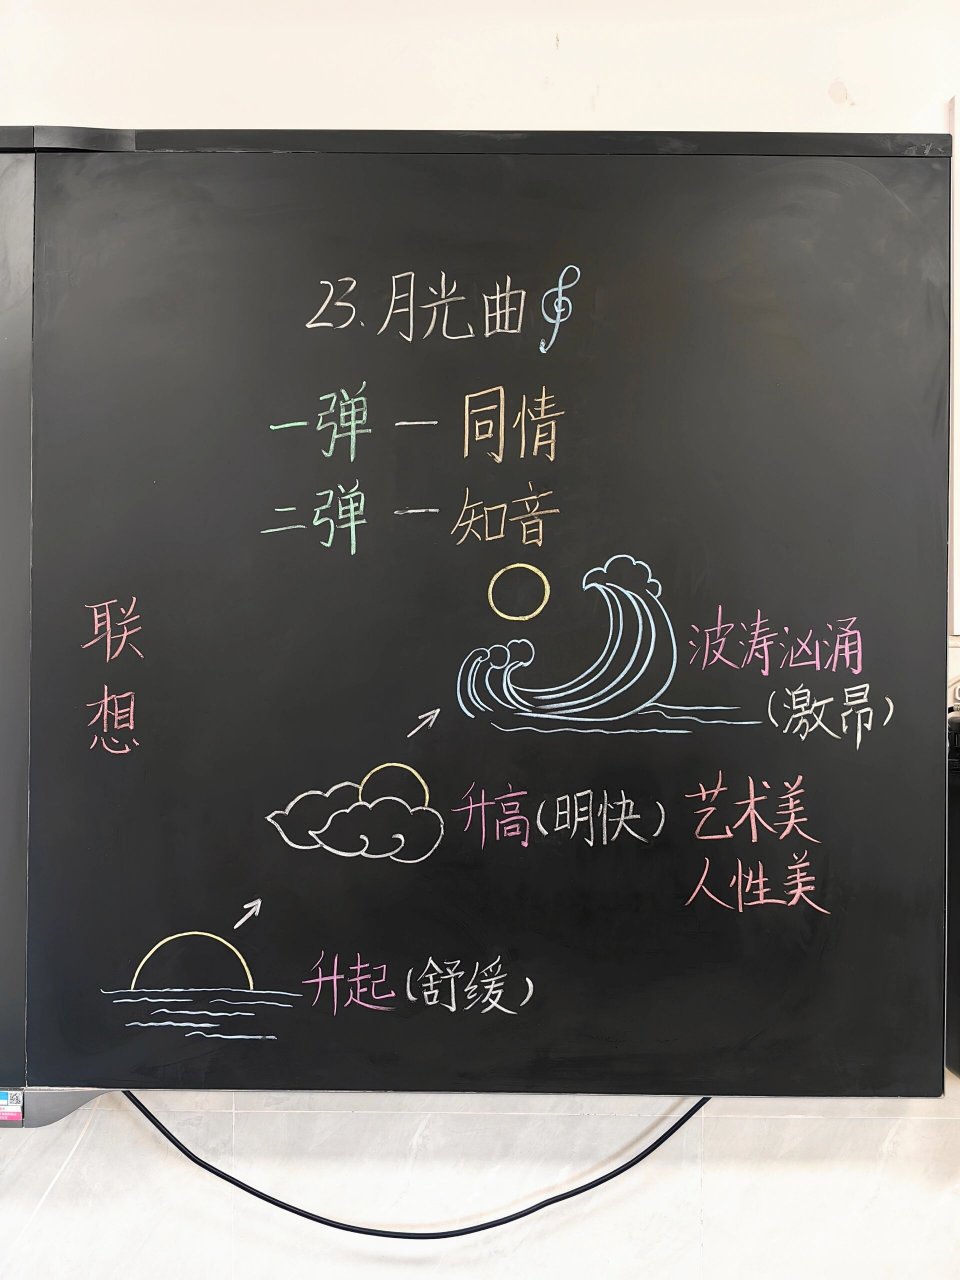 23.月光曲
一弹一同情
二弹一知音
联想
波涛汹涌
(激昂)
升高(明快)
艺术美
人性美
升起(舒缓)